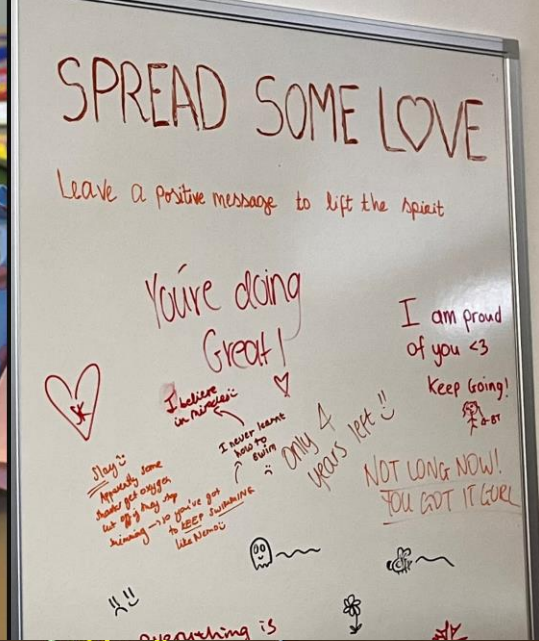 SPREAD SOME LOVE
Leave a positive message to lift the spirit
You're doing
Great!
I am proud
of you <3
Keep Going!
SK
I believe
in miracles
I never learnt
how to
swim
:(
only 4
years left :)
Slay :)
Apparently some
sharks get oxygen
cut off if they stop
swimming -> so you've got
to KEEP SWIMMING
like Nemo :)
NOT LONG NOW!
YOU GOT IT GURL
everything is